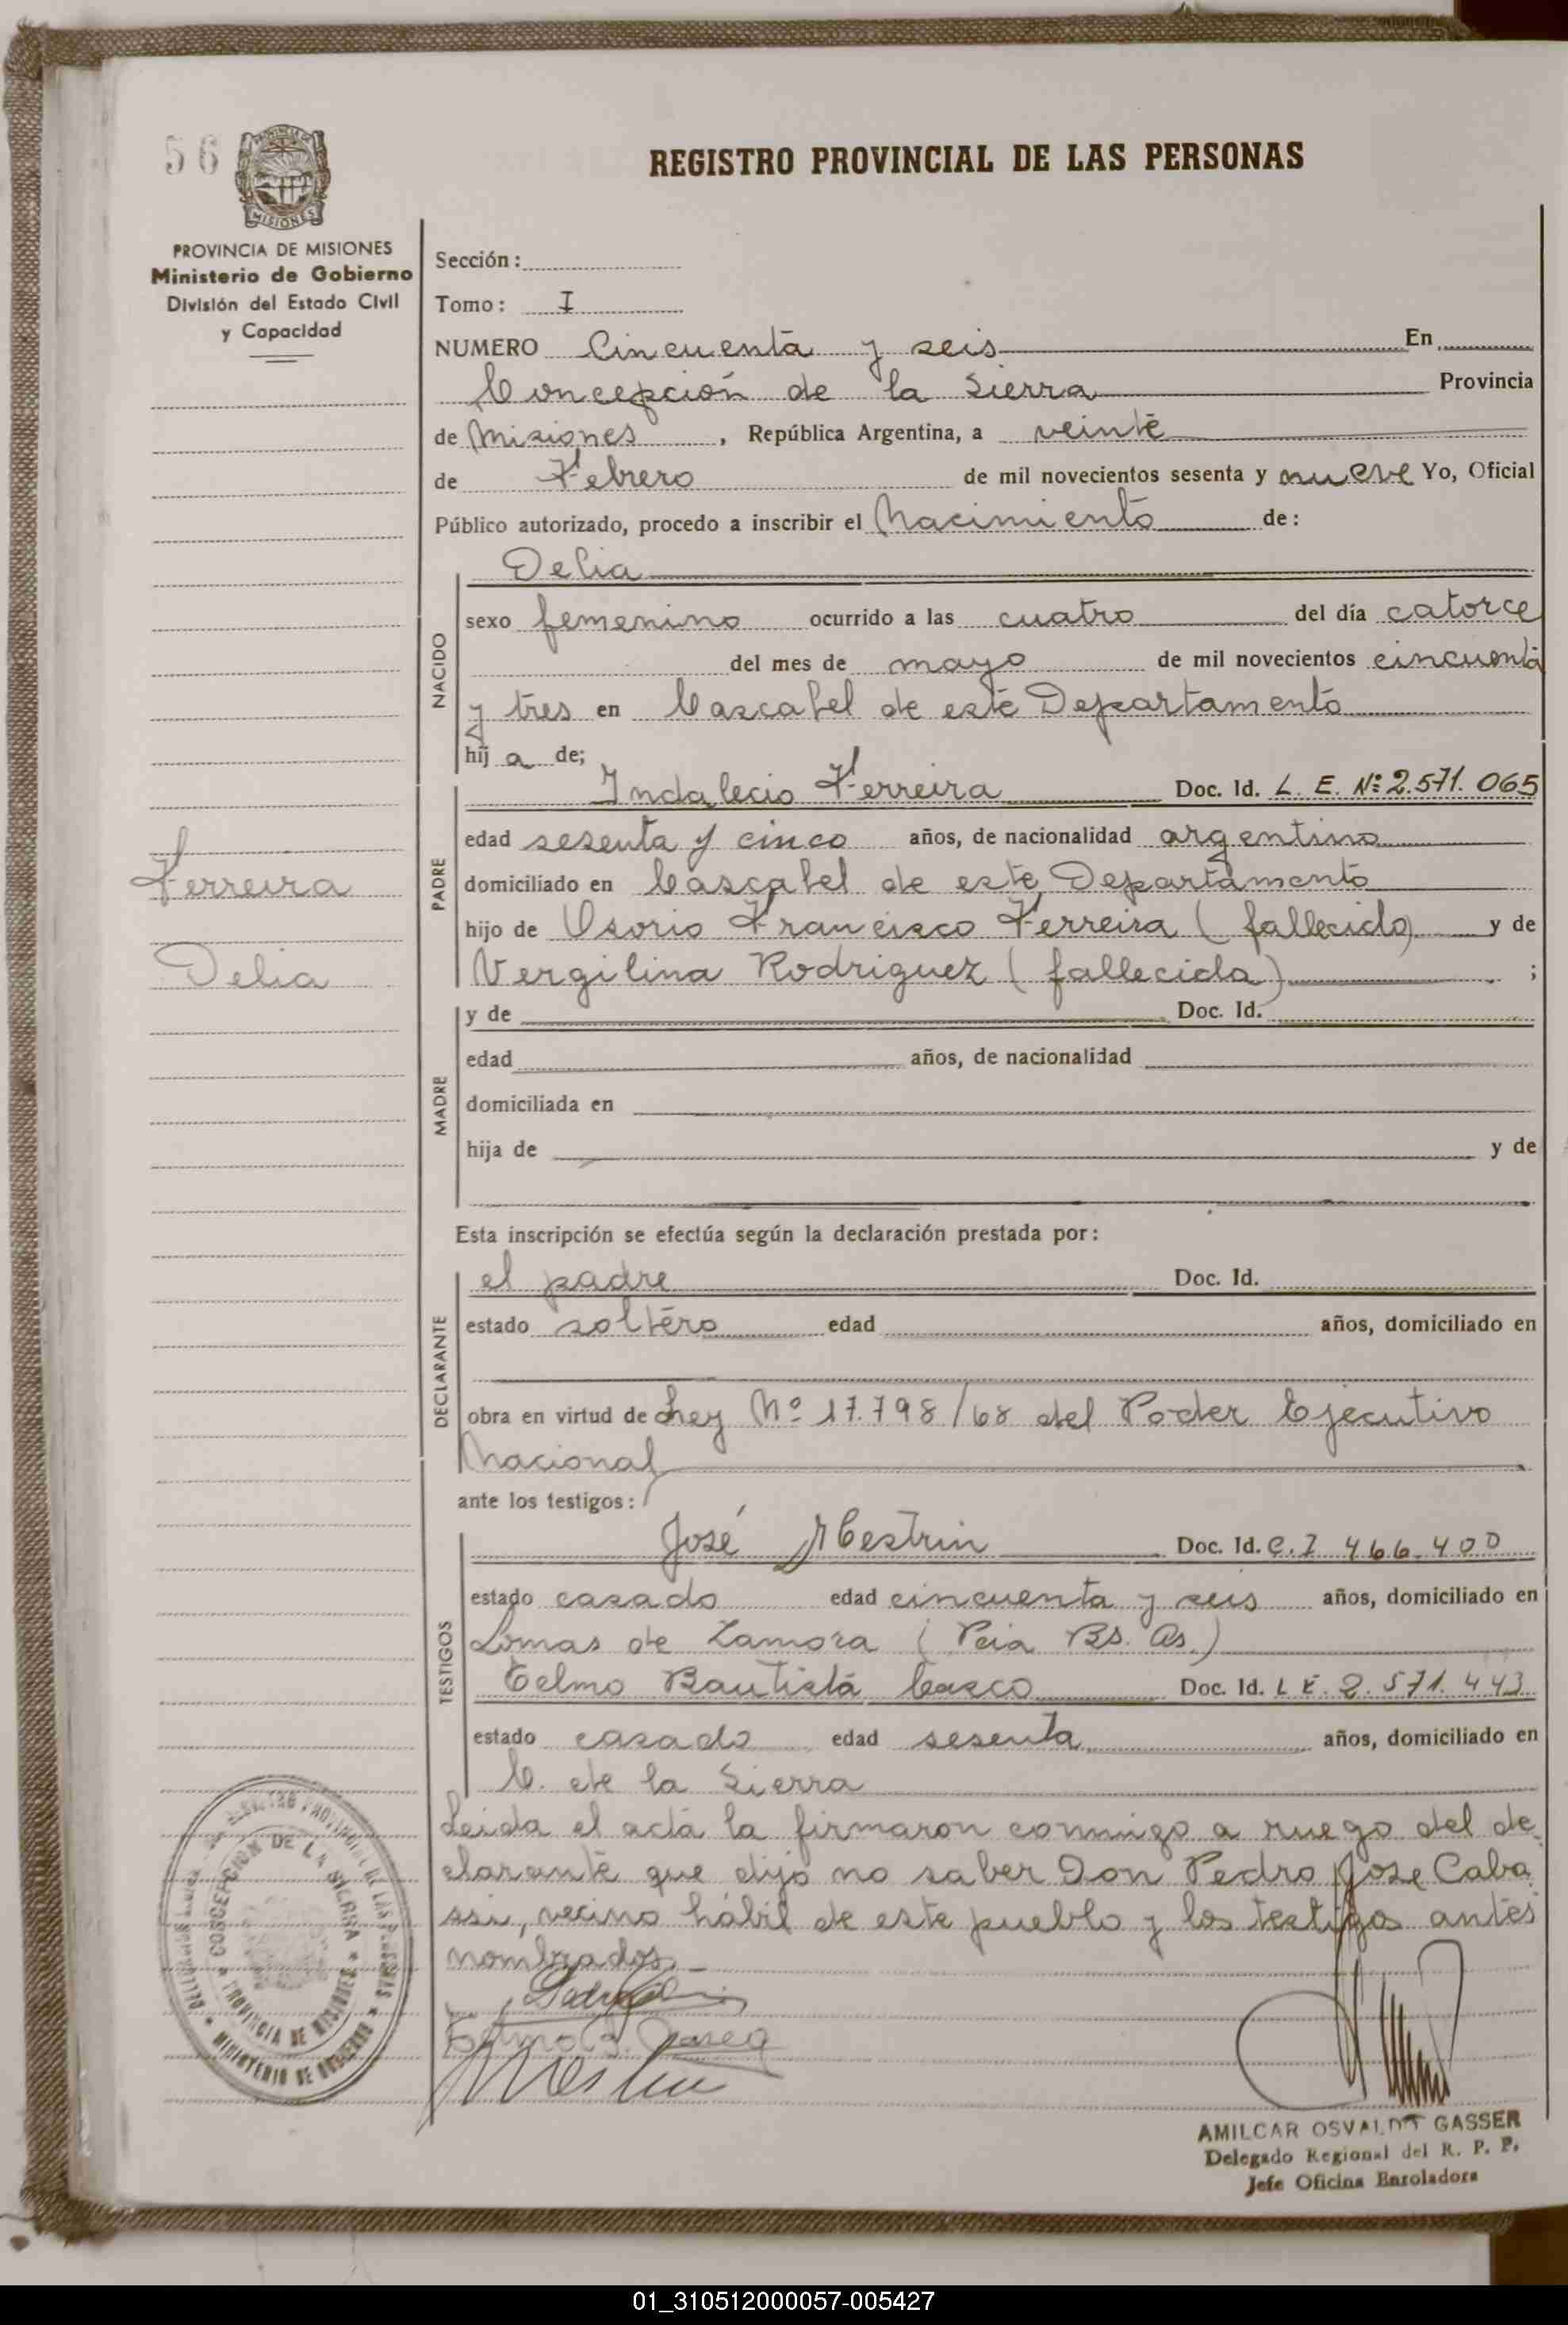 56
MISIONES
PROVINCIA DE MISIONES
Ministerio de Gobierno
División del Estado Civil
y Capacidad
REGISTRO PROVINCIAL DE LAS PERSONAS
Sección:
Tomo: I
NUMERO Cincuenta y seis En
Concepción de la Sierra Provincia
de Misiones, República Argentina, a veinte
de Febrero de mil novecientos sesenta y nueve Yo, Oficial
Público autorizado, procedo a inscribir el Nacimiento de:
NACIDO
Delia
sexo femenino ocurrido a las cuatro del día catorce
del mes de mayo de mil novecientos cincuenta
y tres en Cascabel de este Departamento
hij a de;
PADRE
Indalecio Ferreira Doc. Id. L. E. Nº 2.571.065
edad sesenta y cinco años, de nacionalidad argentino
domiciliado en Cascabel de este Departamento
hijo de Osorio Francisco Ferreira (fallecido) y de
Vergilina Rodriguez (fallecida) ;
Ferreira
Delia
MADRE
y de Doc. Id.
edad años, de nacionalidad
domiciliada en
hija de y de
Esta inscripción se efectúa según la declaración prestada por:
DECLARANTE
el padre Doc. Id.
estado soltero edad años, domiciliado en
obra en virtud de Ley Nº 17.798/68 del Poder Ejecutivo
Nacional
ante los testigos:
TESTIGOS
José Mestrin Doc. Id. C.I 466.400
estado casado edad cincuenta y seis años, domiciliado en
Lomas de Zamora (Pcia Bs. As.)
Telmo Bautista Casco Doc. Id. L E. 2.571.443
estado casado edad sesenta años, domiciliado en
C. de la Sierra
Leida el acta la firmaron conmigo a ruego del de-
clarante que dijo no saber Don Pedro Jose Caba
ssi, vecino hábil de este pueblo y los testigos antes
nombrados.
Telmo B. Casco
Mestrin
REGISTRO PROVINCIAL DE LAS PERSONAS * MINISTERIO DE GOBIERNO *
CONCEPCION DE LA SIERRA * PROVINCIA DE MISIONES *
AMILCAR OSVALDO GASSER
Delegado Regional del R. P. P.
Jefe Oficina Enroladora
01_310512000057-005427